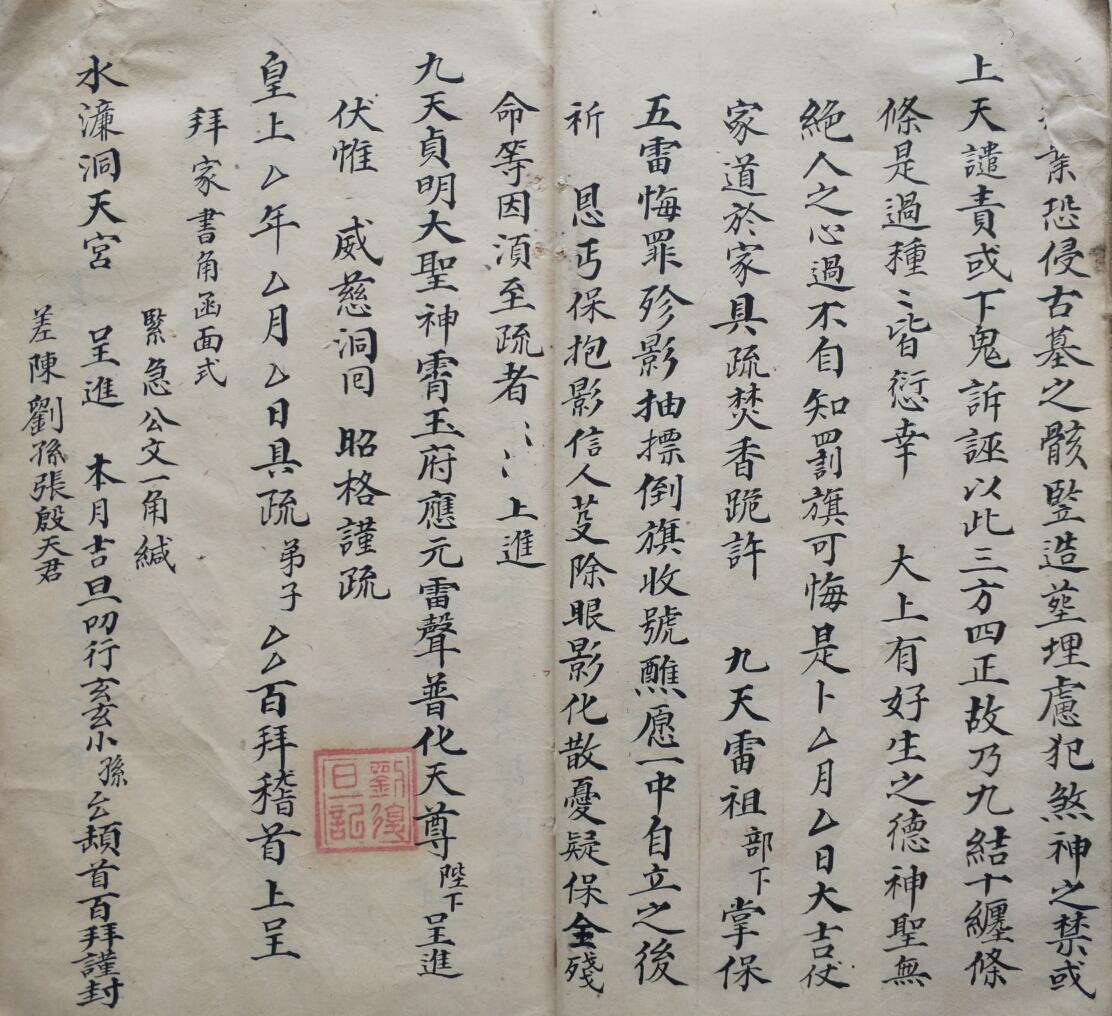 業恐侵古墓之骸竪造塟埋慮犯煞神之禁或
上天譴責或下鬼訴誣以此三方四正故乃九結十纏條
條是過種〻皆愆幸　大上有好生之德神聖無
絕人之心過不自知罰旗可悔是卜厶月厶日大吉仗
家道於家具疏焚香跪許　九天雷祖部下掌保
五雷悔罪殄影抽摽倒旗收號醮愿一中自立之後
祈　恩丐保抱影信人芟除眼影化散憂疑保全殘
命等因湏至疏者〻〻上進
九天貞明大聖神霄玉府應元雷聲普化天尊陛下呈進
伏惟　威慈洞回　昭格謹疏
皇上厶年厶月厶日具疏弟子厶厶百拜稽首上呈
拜家書角函面式
緊急公文一角緘
水濂洞天宮　呈進　本月吉旦叩行玄玄小孫厶頓首百拜謹封
差陳劉孫張殷天君
劉復
旦記